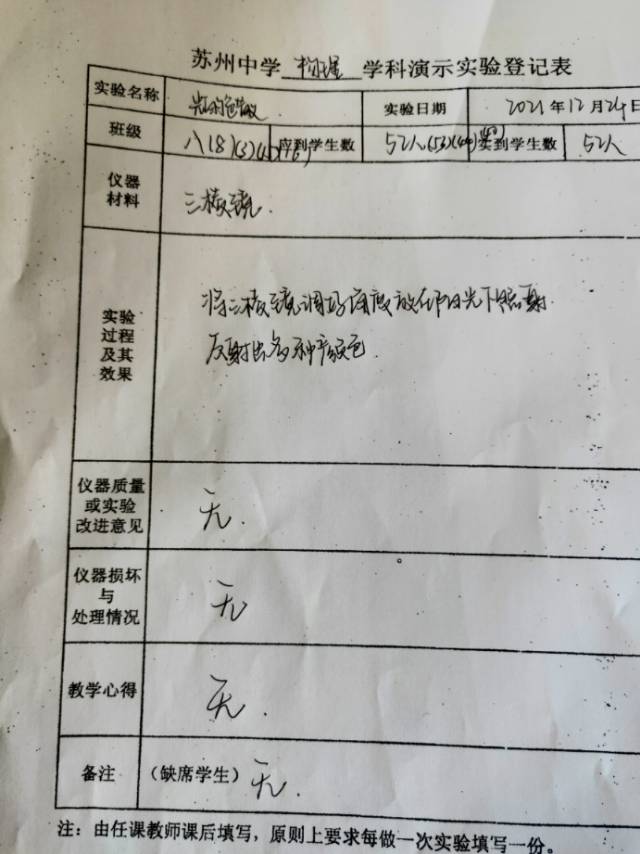 苏州中学 物理 学科演示实验登记表
实验名称 光的色散 实验日期 2021年12月24日
班级 八(8) 应到学生数 52人 实到学生数 52人
仪器
材料
三棱镜.
实验
过程
及其
效果
将三棱镜调好角度放在阳光下照射
反射出多种颜色
仪器质量
或实验
改进意见
无.
仪器损坏
与
处理情况
无
教学心得
无.
备注 (缺席学生) 无.
注:由任课教师课后填写,原则上要求每做一次实验填写一份。